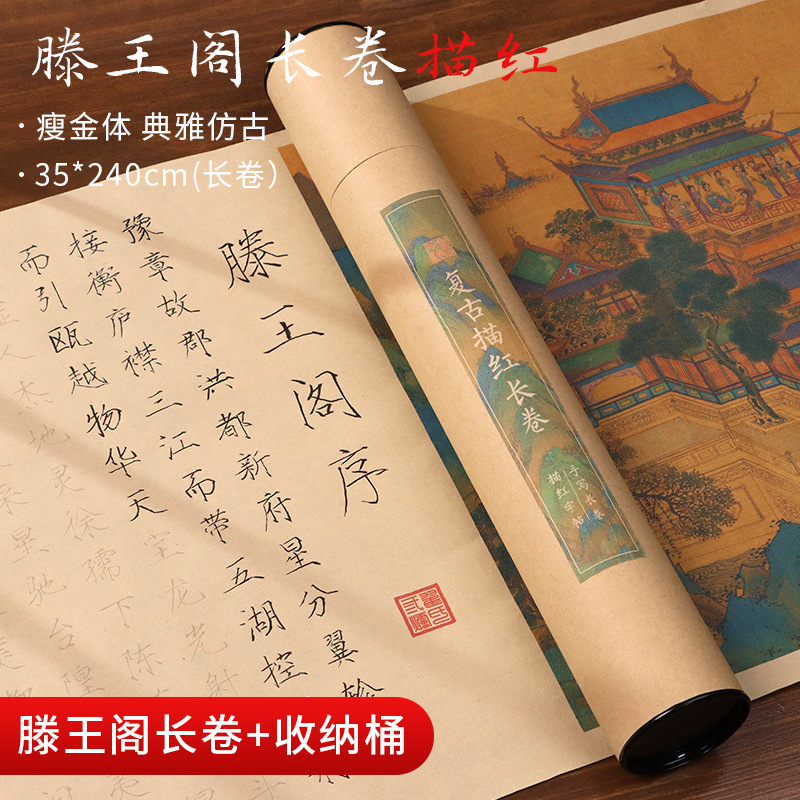 滕王阁长卷描红
· 瘦金体 典雅仿古
· 35*240cm(长卷)
滕王阁序
豫章故郡洪都新府星分翼
接衡庐襟三江而带五湖控
而引瓯越物华天宝龙光射
人杰地灵徐孺下陈
采星驰台隍
复古描红长卷
手写长卷
描红字帖
滕王阁长卷+收纳桶